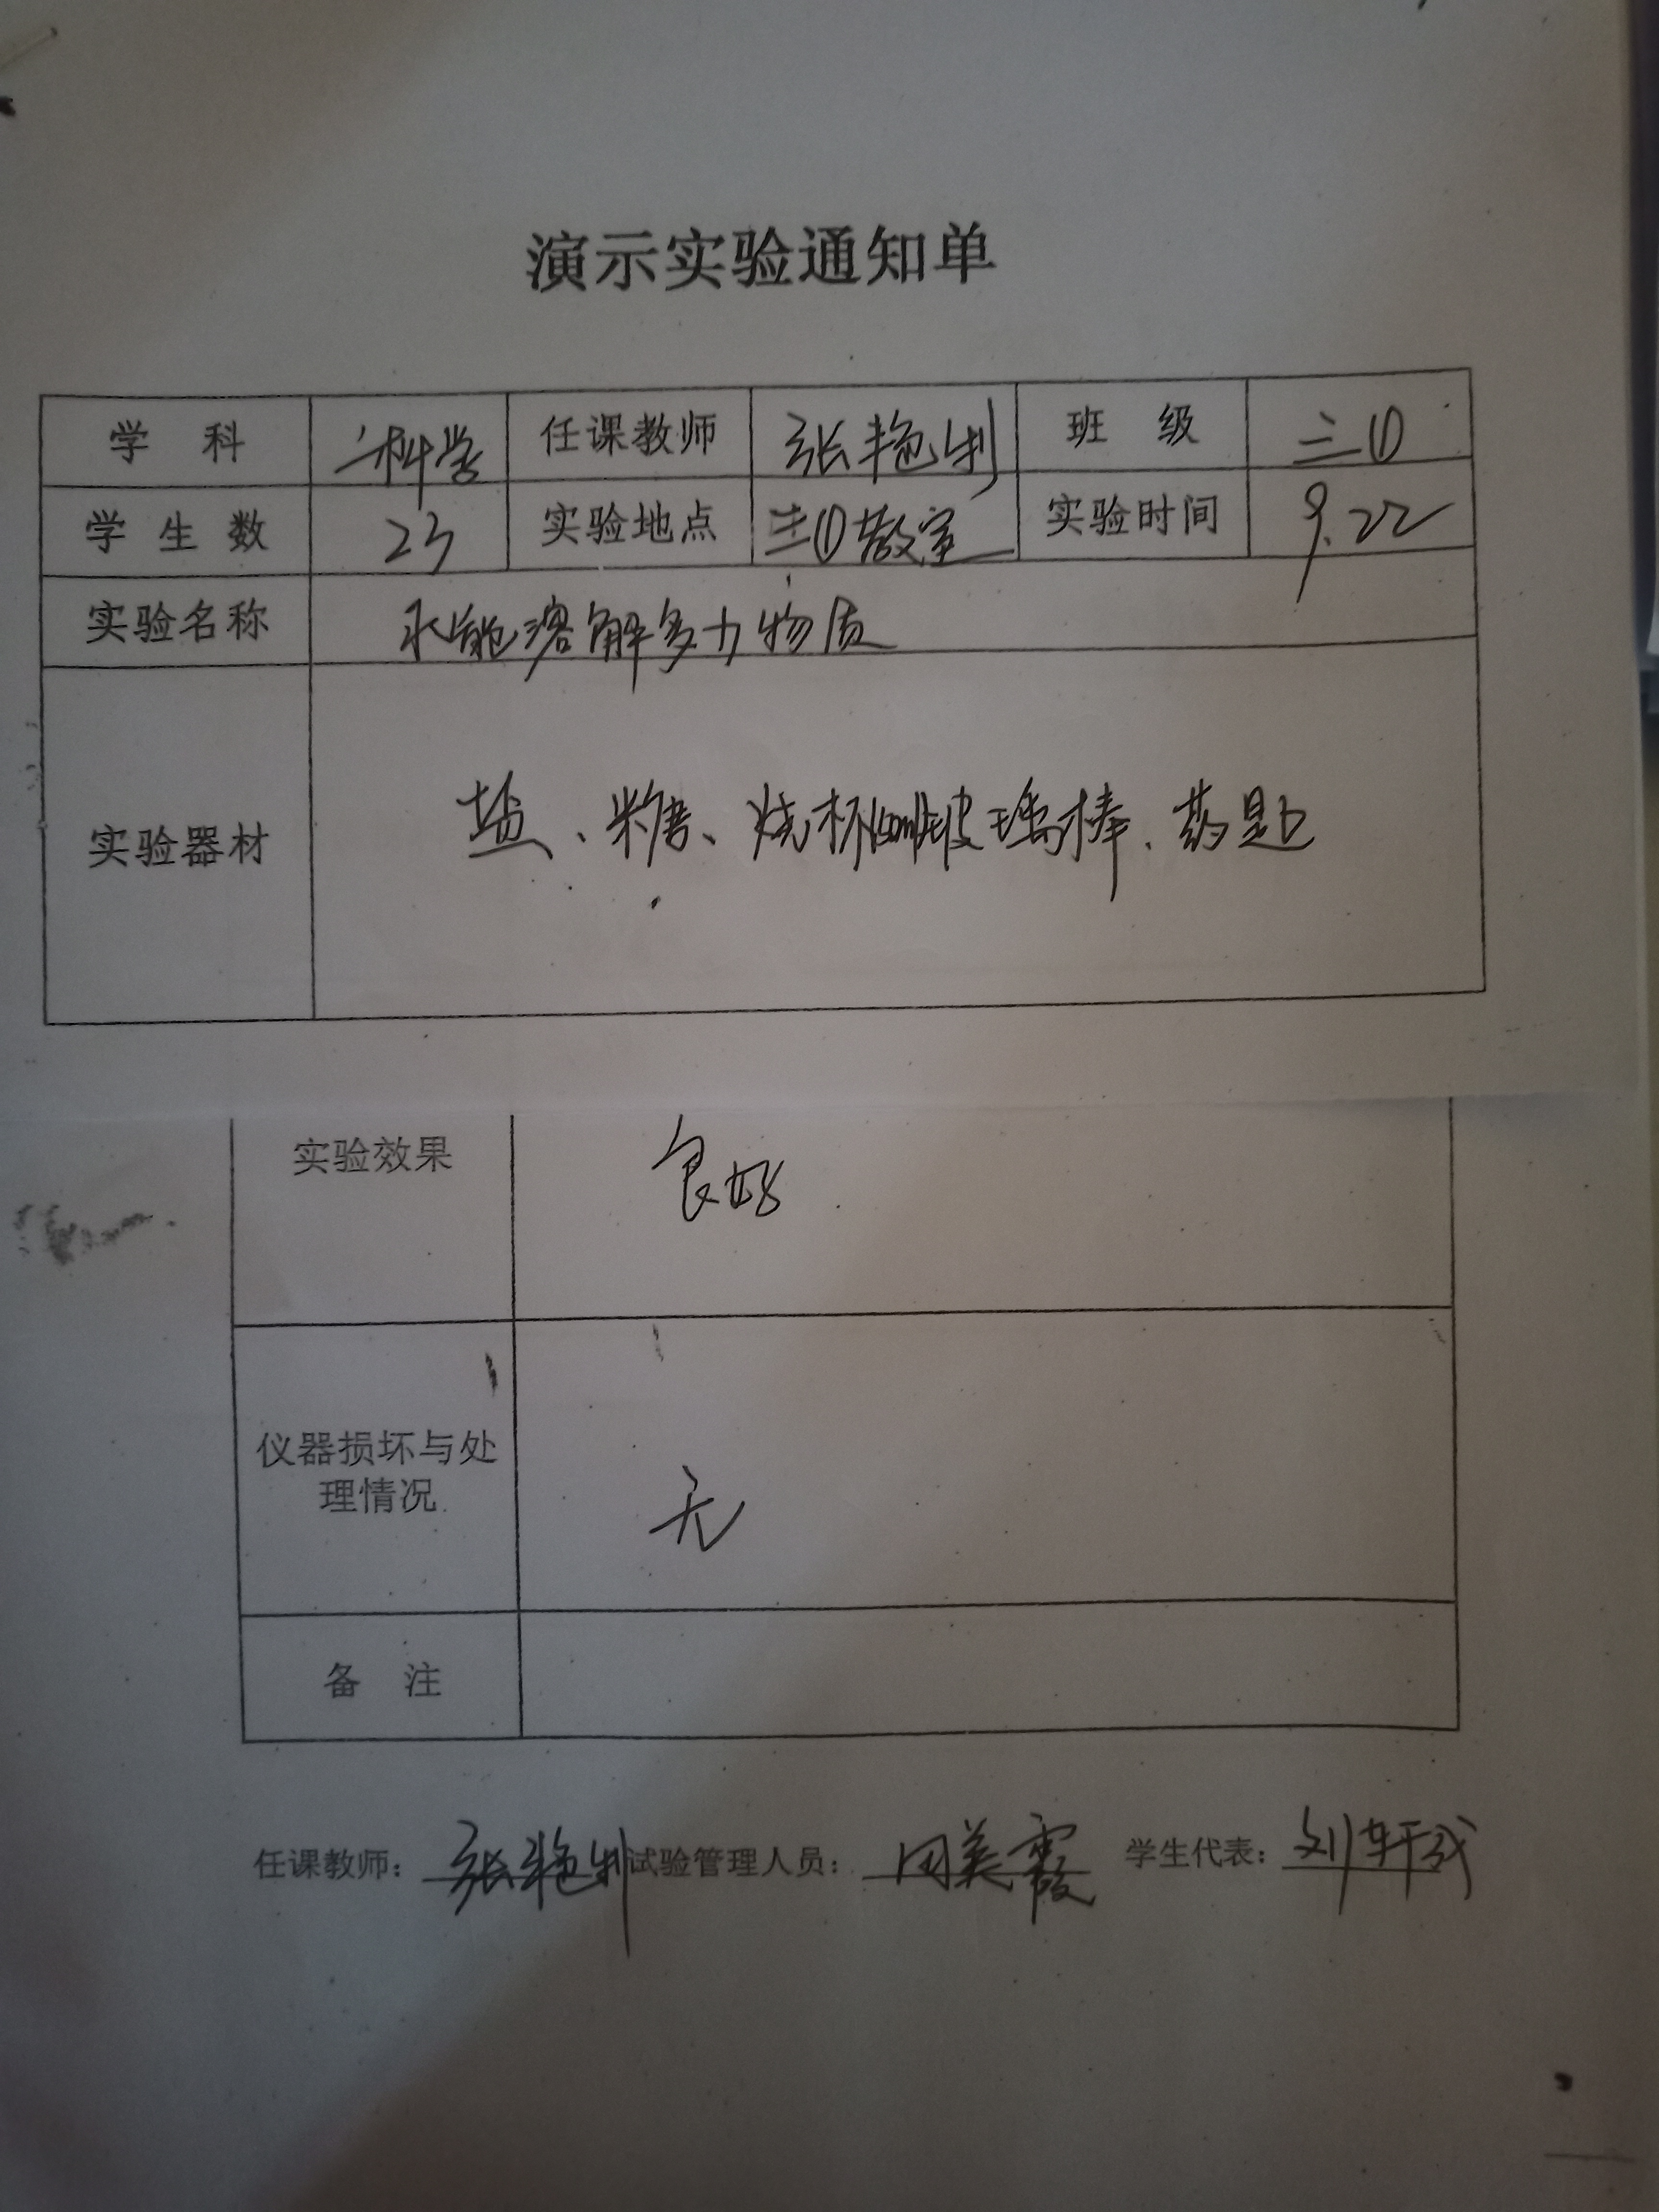 演示实验通知单
学 科 科学 任课教师 张艳制 班 级 三①
学 生 数 23 实验地点 三①教室 实验时间 9.22
实验名称 水能溶解多少物质
实验器材 盐、糖、烧杯 玻璃棒、药匙
实验效果 良好
仪器损坏与处
理情况 无
备 注
任课教师: 张艳 试验管理人员: 田美霞 学生代表: 刘轩成